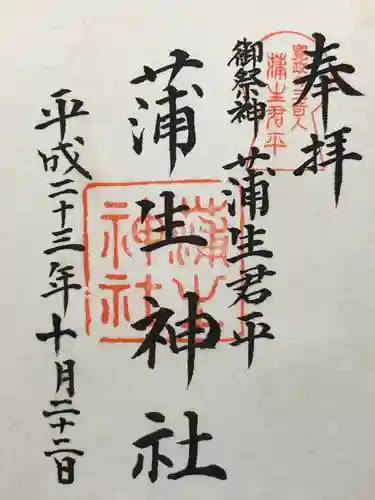 奉拝
寛政三奇人
蒲生君平
御祭神 蒲生君平
蒲生神社
蒲生
神社
平成二十三年十月二十二日